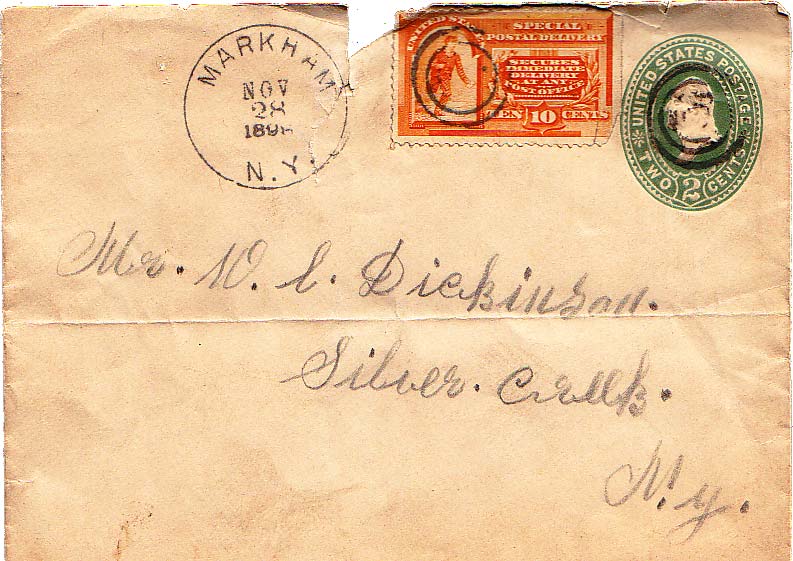 MARKHAM
NOV
28
N.Y.
UNITED STATES
SPECIAL
POSTAL DELIVERY
SECURES
IMMEDIATE
DELIVERY
AT ANY
POST OFFICE
TEN 10 CENTS
UNITED STATES POSTAGE
TWO 2 CENTS
Mr. W. C. Dickinson.
Silver. Creek.
N.y.